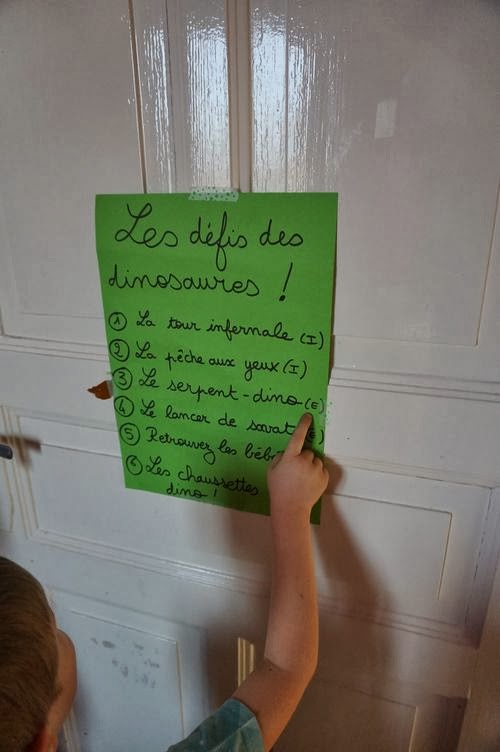 Les défis des
dinosaures !
1 La tour infernale (I)
2 La pêche aux yeux (I)
3 Le serpent-dino (E)
4 Le lancer de savat E)
5 Retrouvez les béb
6 Les chaussettes
dino !